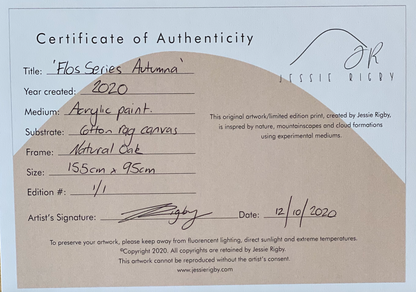 Certificate of Authenticity
JR
JESSIE RIGBY
Title: 'Flos Series Autumna'
Year created: 2020
Medium: Acrylic paint.
Substrate: Cotton Rag canvas
Frame: Natural Oak
Size: 155cm x 95cm
Edition #: 1/1
This original artwork/limited edition print, created by Jessie Rigby,
is inspred by nature, mountainscapes and cloud formations
using experimental mediums.
Artist's Signature: Rigby Date: 12/10/2020
To preserve your artwork, please keep away from fluorencent lighting, direct sunlight and extreme temperatures.
©Copyright 2020. All copyrights are retained by Jessie Rigby.
This artwork cannot be reproduced without the artist's consent
www.jessierigby.com